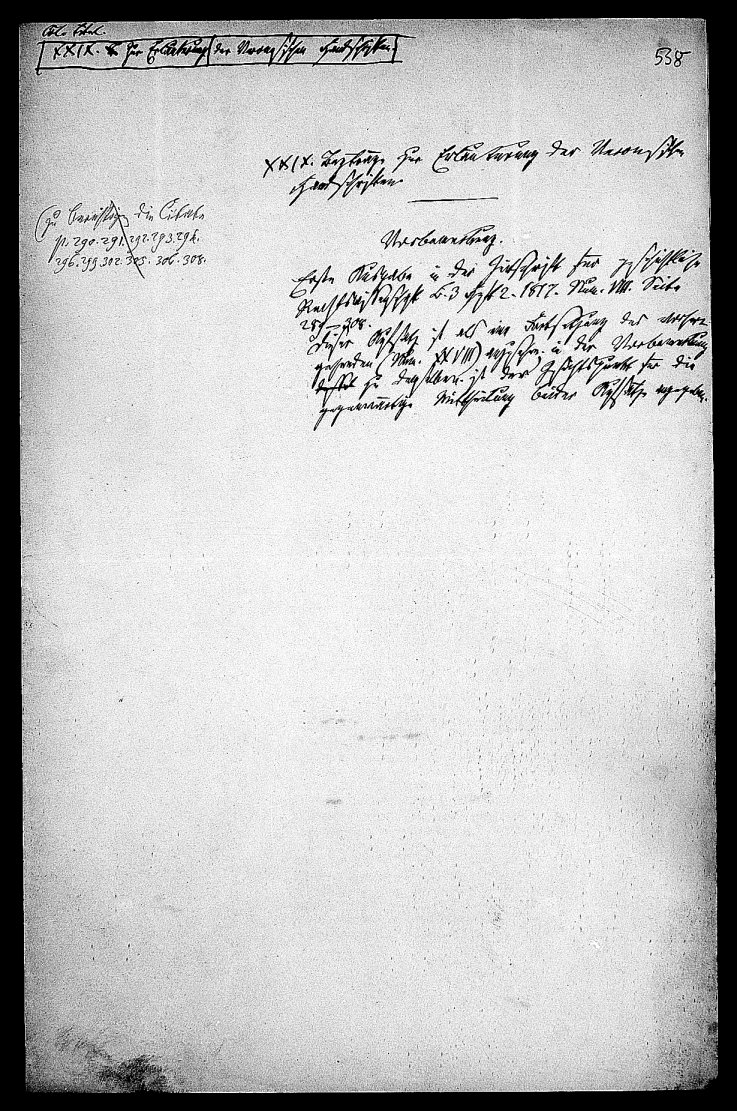 Col. Titel.
XXIX. Zur Erläuterung der Veronesischen Handschriften.
538
XXIX. Beyträge zur Erläuterung der Veronesischen
Handschriften.
(zu berichtigen die Citate
p. 290. 291. 292. 293. 294.
296. 299 302. 303. 306. 308.
Vorbemerkung.
Erste Ausgabe in der Zeitschrift für geschichtliche
Rechtswissenschaft B. 3 Heft 2. 1817. Num. VII. Seite
287-308.
Dieser Aufsatz ist als eine Fortsetzung des vorher-
gehenden (Num. XXVIII) anzusehen. in der Vorbemerkung
zu demselben ist der Gesichtspunkt für die
gegenwärtige Mittheilung beider Aufsätze angegeben.